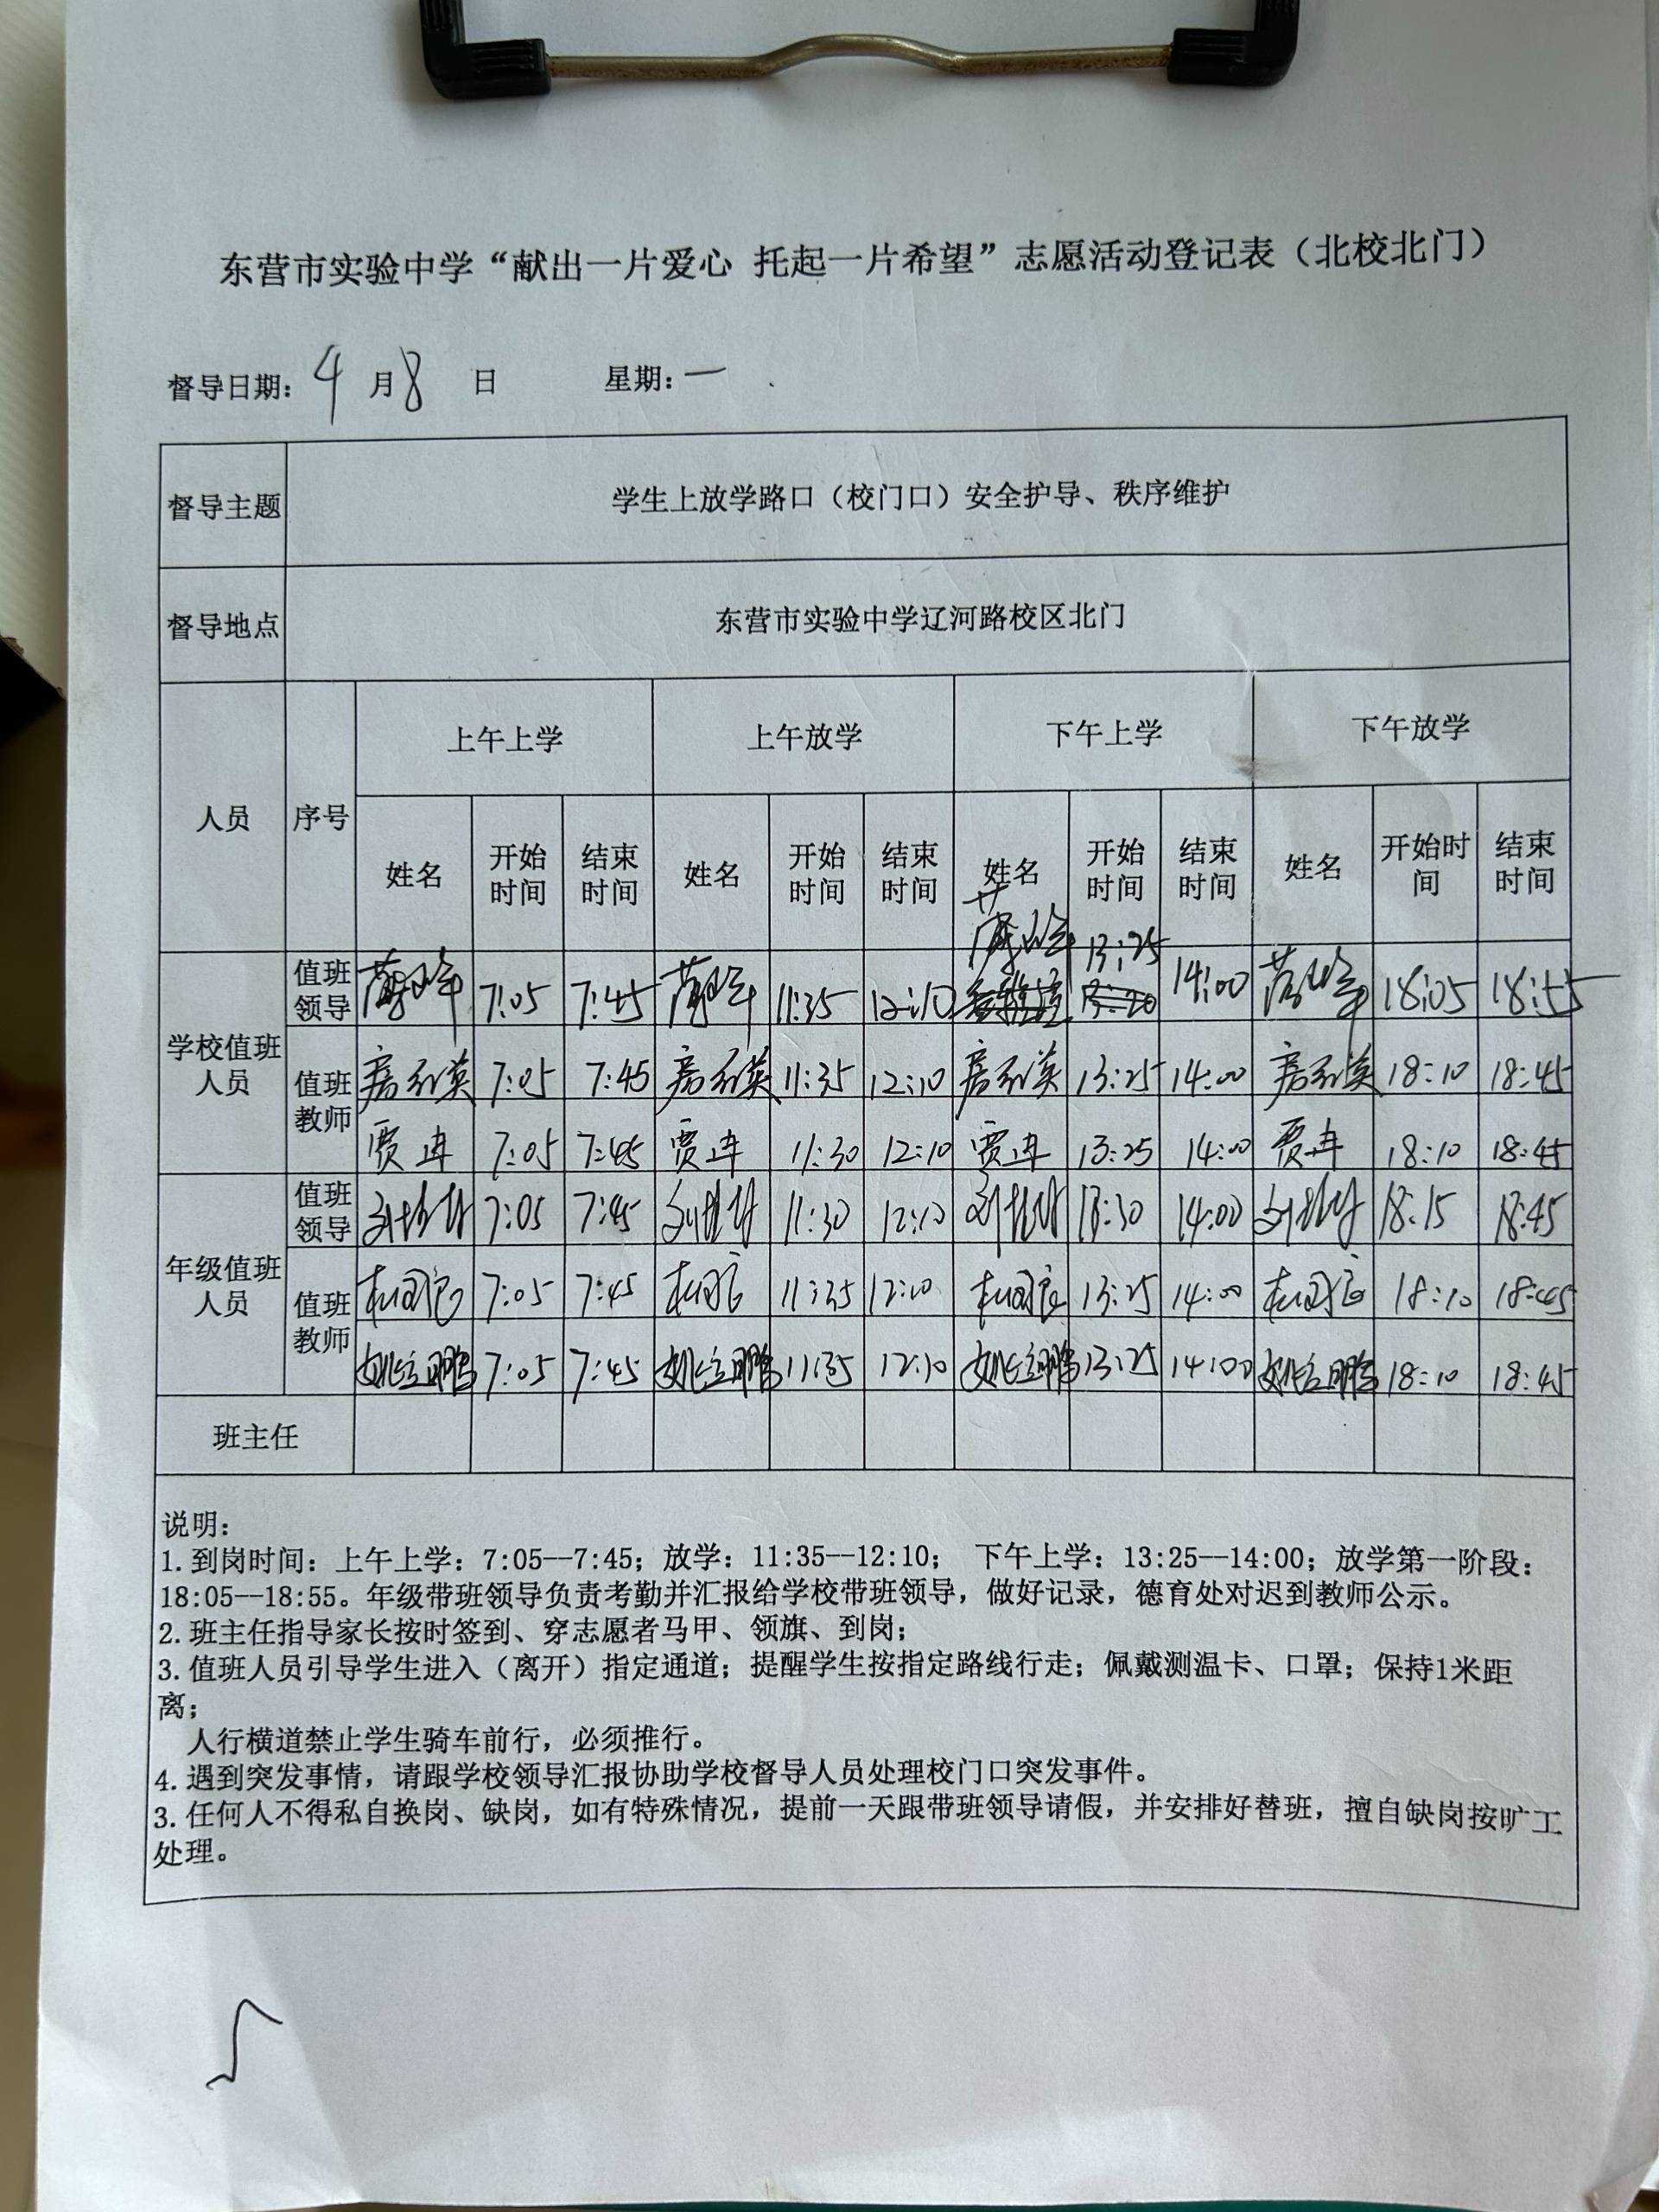 东营市实验中学“献出一片爱心 托起一片希望”志愿活动登记表（北校北门）
督导日期：4月8日 星期：一
督导主题 学生上放学路口（校门口）安全护导、秩序维护
督导地点 东营市实验中学辽河路校区北门
人员 序号 上午上学 上午放学 下午上学 下午放学
姓名 开始时间 结束时间 姓名 开始时间 结束时间 姓名 开始时间 结束时间 姓名 开始时间 结束时间
13:25
学校值班人员 值班领导 7:05 7:45 11:35 12:10 14:00 18:05 18:55
值班教师 7:05 7:45 11:35 12:10 13:25 14:00 18:10 18:45
贾连 7:05 7:45 贾连 11:30 12:10 贾连 13:25 14:00 贾连 18:10 18:45
年级值班人员 值班领导 7:05 7:45 11:30 12:10 13:30 14:00 18:15 18:45
值班教师 7:05 7:45 11:35 12:10 13:25 14:00 18:10 18:45
姚立鹏 7:05 7:45 姚立鹏 11:35 12:10 姚立鹏 13:25 14:00 姚立鹏 18:10 18:45
班主任
说明：
1.到岗时间：上午上学：7:05--7:45；放学：11:35--12:10； 下午上学：13:25--14:00；放学第一阶段：
18:05--18:55。年级带班领导负责考勤并汇报给学校带班领导，做好记录，德育处对迟到教师公示。
2.班主任指导家长按时签到、穿志愿者马甲、领旗、到岗；
3.值班人员引导学生进入（离开）指定通道；提醒学生按指定路线行走；佩戴测温卡、口罩；保持1米距
离；
人行横道禁止学生骑车前行，必须推行。
4.遇到突发事情，请跟学校领导汇报协助学校督导人员处理校门口突发事件。
3.任何人不得私自换岗、缺岗，如有特殊情况，提前一天跟带班领导请假，并安排好替班，擅自缺岗按旷工
处理。